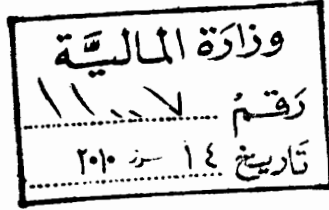 وزارة المالية
رقم ١١٠٠٧
تاريخ ١٤ تموز ٢٠١٠